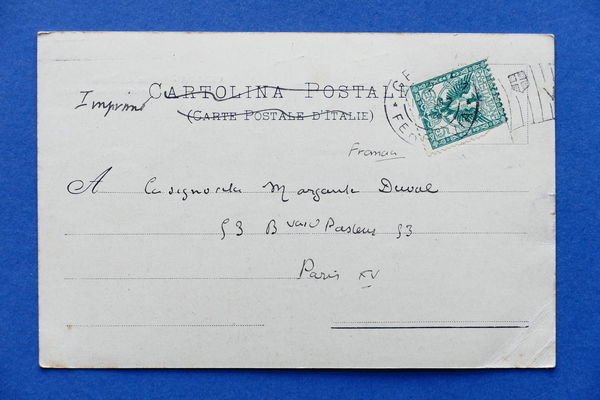 Imprimé CARTOLINA POSTALE
(CARTE POSTALE D'ITALIE)
Francia
A La signorita Margarita Duval
53 Bvard Pasteur 53
Paris XV